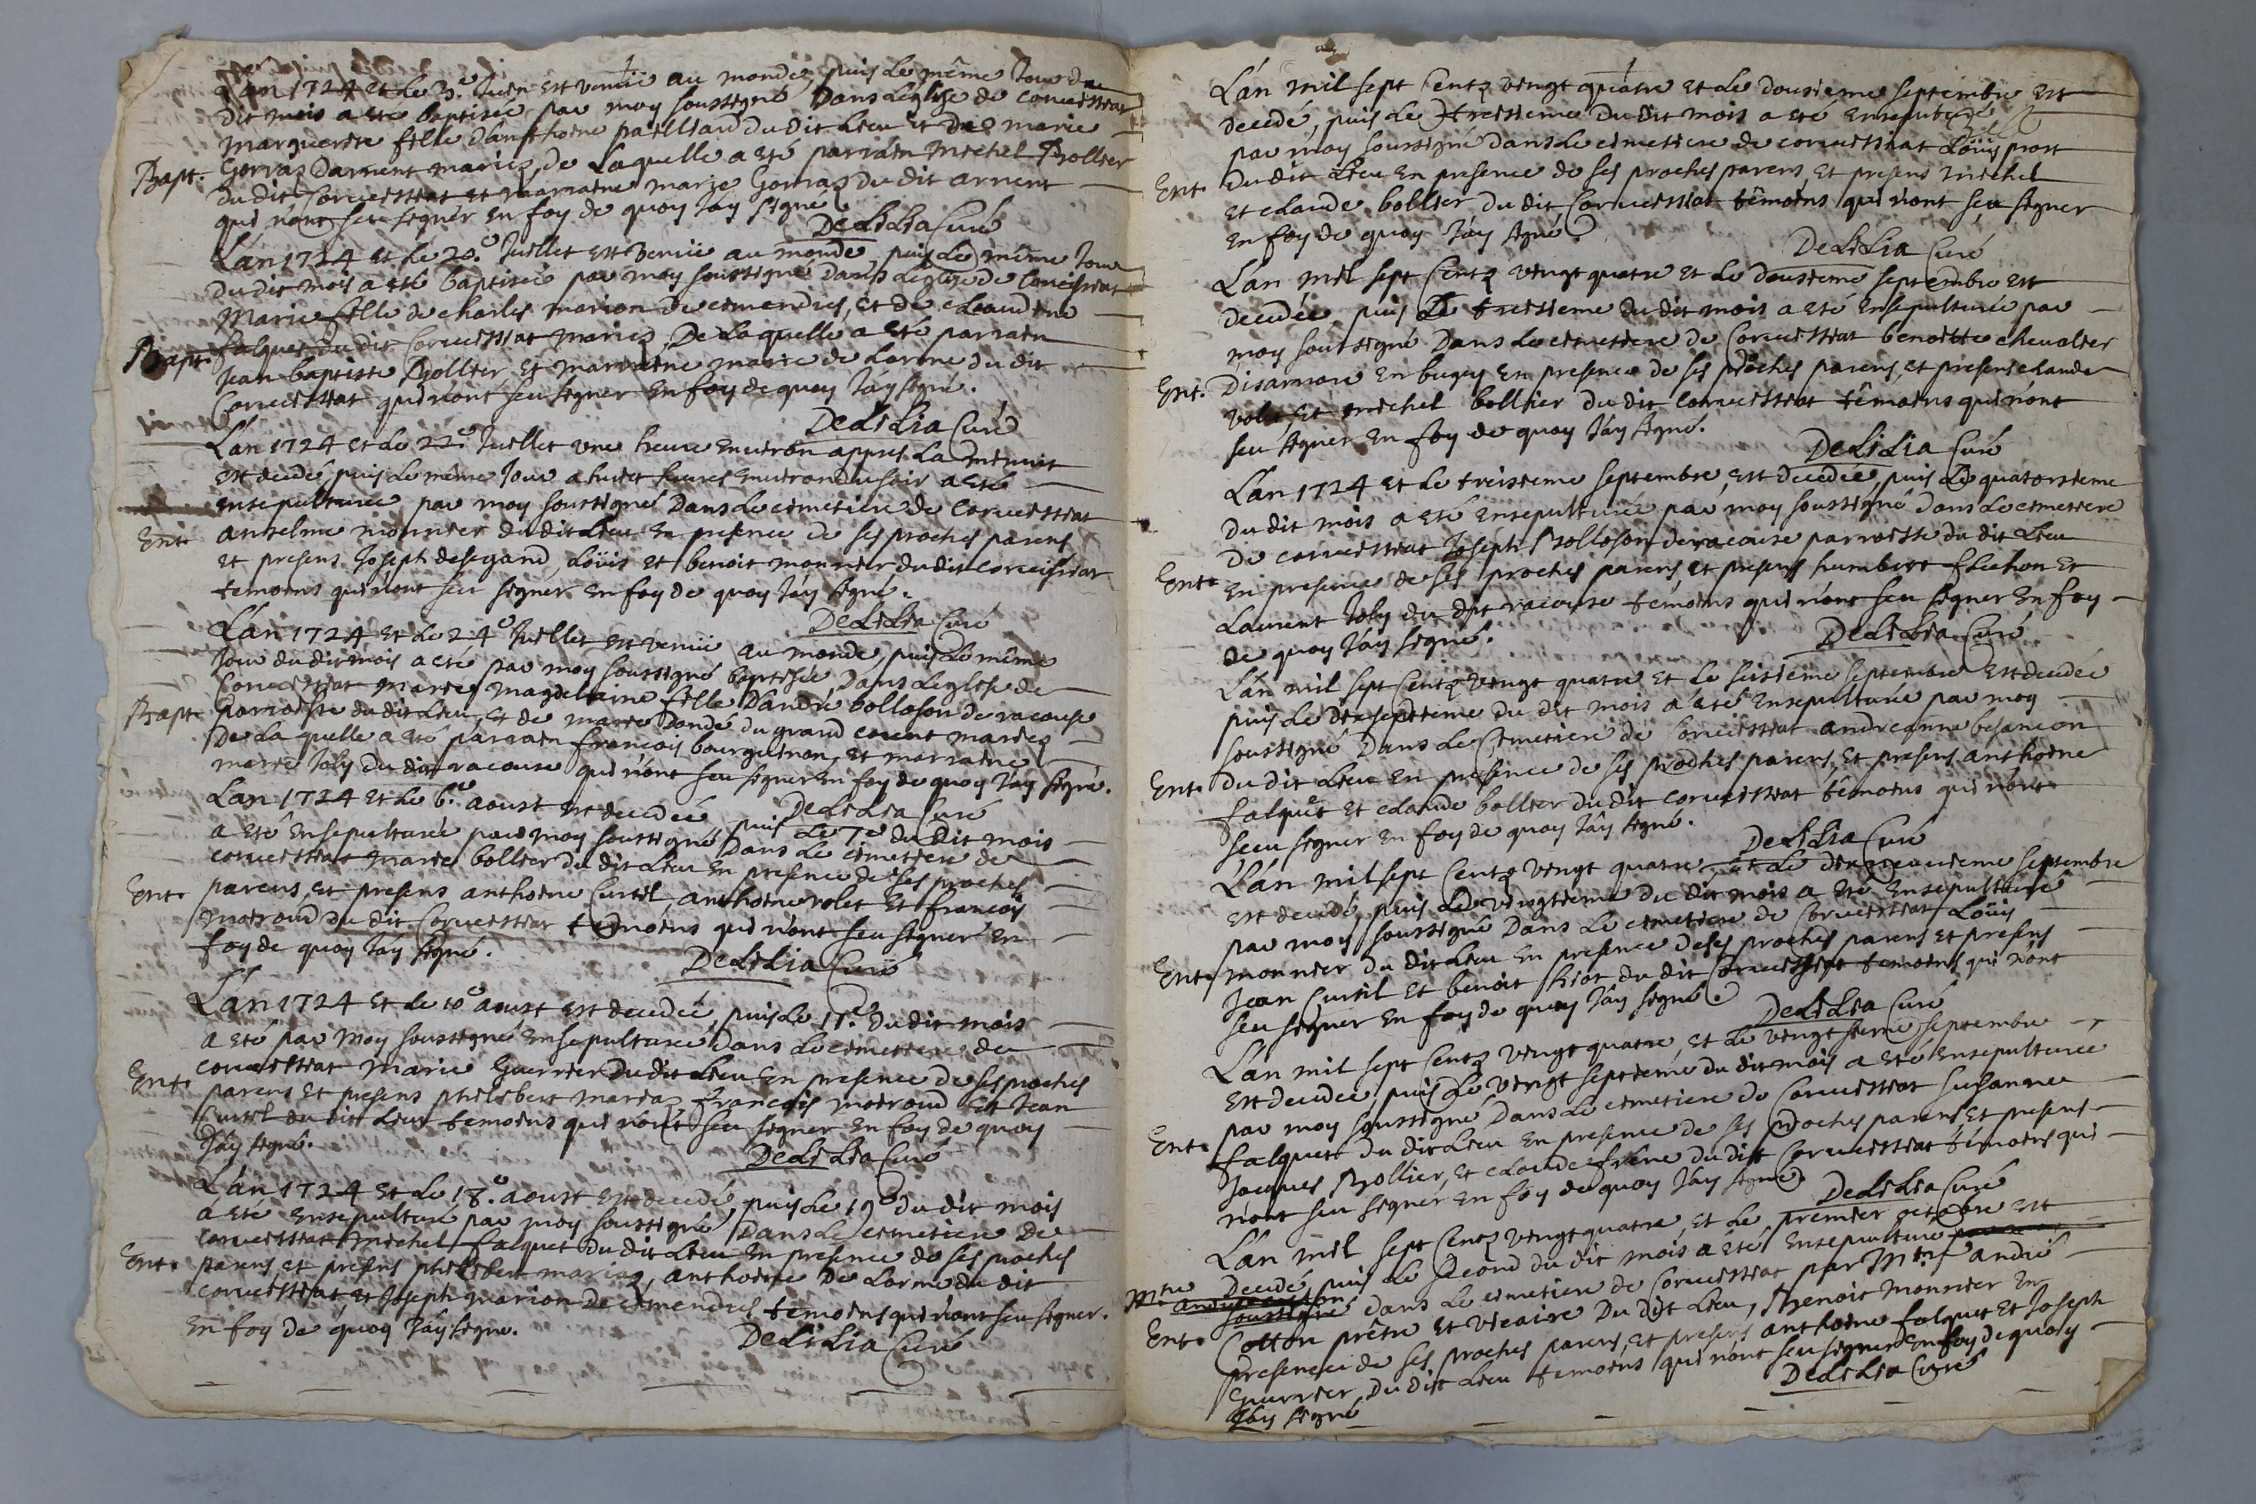 L'an 1724 et le 3.e Juin est venüe au monde, puis le même Jour du
dit mois a eté baptisée par moy soussigné Dans l'eglise de corveissiat
marguerite fille d'anthoine pailliard du dit Lieu et de marie
Bapt. Gorraz Darnent mariez, de Laquelle a eté parrain michel Bollier
du dit Corveissiat et marraine marie Gorraz du dit arnent
qui n'ont seu signer en foy de quoy J'ay signé.
DeLiLia Curé
L'an 1724 et le 20.e Juillet est venüe au monde, puis le même Jour
du dit mois a eté baptisée par moy soussigné Dans l'eglise de Corveissiat
Marie fille de charles marion de cimandres, et de claudine
Bapt. falquet du dit Corveissiat mariez, De Laquelle a eté parrain
Jean baptiste Bollier et marraine marie de Lorme du dit
Corveissiat qui n'ont seu signer en foy de quoy J'ay signé.
DeLiLia Curé
L'an 1724 et le 22.e Juillet une heure environ apprès La minuit
est decedé, puis le même Jour a huict heures environ du soir a eté
ensepulturée par moy soussigné Dans le cimetiere de Corveissiat
Ent. anselme monnier du dit Lieu en presence de ses proches parens
et presens Joseph desegand, Loüis et benoit monnier du dit Corveissiat
temoins qui n'ont seu signer en foy de quoy J'ay signé.
DeLiLia Curé
L'an 1724 et le 24.e Juillet est venüe au monde, puis le même
Jour du dit mois a eté par moy soussigné baptisée Dans l'eglise de
Corveissiat marie magdelaine fille d'andré bolloson de racouse
Bapt. parroisse du dit Lieu, et de marie Dandé du grand corent mariez
De La quelle a eté parrain françois bourguinon, et marraine
marie Joly du dit racouse qui n'ont seu signer en foy de quoy J'ay signé.
DeLiLia Curé
L'an 1724 et le 6.e aoust est decedée puis le 7.e du dit mois
a eté ensepulturée par moy soussigné Dans le cimetiere de
corveissiat marie bollier du dit Lieu en presence de ses proches
Ent. parens, et presens anthoine Curtil, anthoine volet et françois
moiroud du dit Corveissiat temoins qui n'ont seu signer en
foy de quoy J'ay signé.
DeLiLia Curé
L'an 1724 et le 10.e aoust est decedée, puis le 11.e du dit mois
a eté par moy soussigné ensepulturée Dans le cimetiere de
corveissiat marie Guerrier du dit Lieu en presence de ses proches
Ent. parens et presens philibert mariaz, françois moiroud et Jean
Curtil du dit Lieu temoins qui n'ont seu signer en foy de quoy
J'ay signé.
DeLiLia Curé
L'an 1724 et le 18.e aoust est decedé, puis le 19.e du dit mois
a eté ensepulturé par moy soussigné Dans le cimetiere de
corveissiat michel falquet du dit Lieu en presence de ses proches
Ent. parens et presens philibert mariaz, anthoine De Lorme du dit
corveissiat et Joseph marion de cimendres temoins qui n'ont seu signer.
En foy de quoy J'ay signé.
DeLiLia Curé
L'an mil sept Centz vingt quatre et le dousieme septembre est
decedé, puis le treisieme du dit mois a eté ensepulturé
par moy soussigné dans le cimetiere de corveissiat Loüis prost
Ent. du dit Lieu en presence de ses proches parens, et presens michel
et claude bollier du dit Corveissiat têmoins qui n'ont seu signer
en foy de quoy J'ay signé.
DeLiLia Curé
L'an mil sept Centz vingt quatre et le dousieme septembre est
decedée, puis Le treisieme du dit mois a eté ensepulturée par
moy soussigné Dans Le cimetiere de Corveissiat benoitte chevalier
Ent. Disarnore en bugey en presence de ses proches parens, et presens claude
volet et michel bollier du dit Corveissiat têmoins qui n'ont
seu signer en foy de quoy J'ay signé.
DeLiLia Curé
L'an 1724 et le treisieme septembre, est decedée, puis Le quatorsieme
du dit mois a eté ensepulturée par moy soussigné dans Le cimetiere
de corveissiat Joseph Bolloson de racouse parroisse du dit Lieu
Ent. en presence de ses proches parens, et presens humbert fluchon et
Laurent Joly du dit racouse temoins qui n'ont seu signer en foy
de quoy J'ay signé.
DeLiLia Curé
L'an mil sept Centz vingt quatre et le seisieme septembre est decedée
puis le dixseptieme du dit mois a eté ensepulturée par moy
soussigné Dans Le Cimetiere de Corveissiat andreanne besançon
Ent. du dit Lieu en presence de ses proches parens, et presens anthoine
falquet et claude bollier du dit corveissiat témoins qui n'ont
seeu signer en foy de quoy J'ay signé.
DeLiLia Curé
L'an mil sept Centz vingt quatre, et Le dixneuvieme septembre
est decedé, puis Le vingtieme du dit mois a eté ensepulturé
par moy soussigné Dans Le cimetiere de Corveissiat Loüis
Ent. monnier du dit Lieu en presence de ses proches parens et presens
Jean Curtil et benoit Brot du dit Corveissiat temoins qui n'ont
seu signer en foy de quoy J'ay signé.
DeLiLia Curé
L'an mil sept Centz vingt quatre, et Le vingt sieme septembre
est decedée, puis Le vingt septieme du dit mois a eté ensepulturée
par moy soussigné Dans Le cimetiere de Corveissiat susanne
Ent. falquet du dit Lieu en presence de ses proches parens, et presens
Jacques Bollier, et claude frêne du dit Corveissiat témoins qui
n'ont seu signer en foy de quoy J'ay signé.
DeLiLia Curé
L'an mil sept Centz vingt quatre, et Le premier octobre est
Decedé, puis Le second du dit mois a eté ensepulturé par moy
soussigné dans Le cimetiere de Corveissiat par Mre andré
Ent. Cotton prêtre et vicaire Du dit Lieu, Benoit monnier en
presence de ses proches parens, et presens anthoine falquet et Joseph
Guerrier Du dit Lieu temoins qui n'ont seu signer en foy de quoy
J'ay signé
DeLiLia Curé